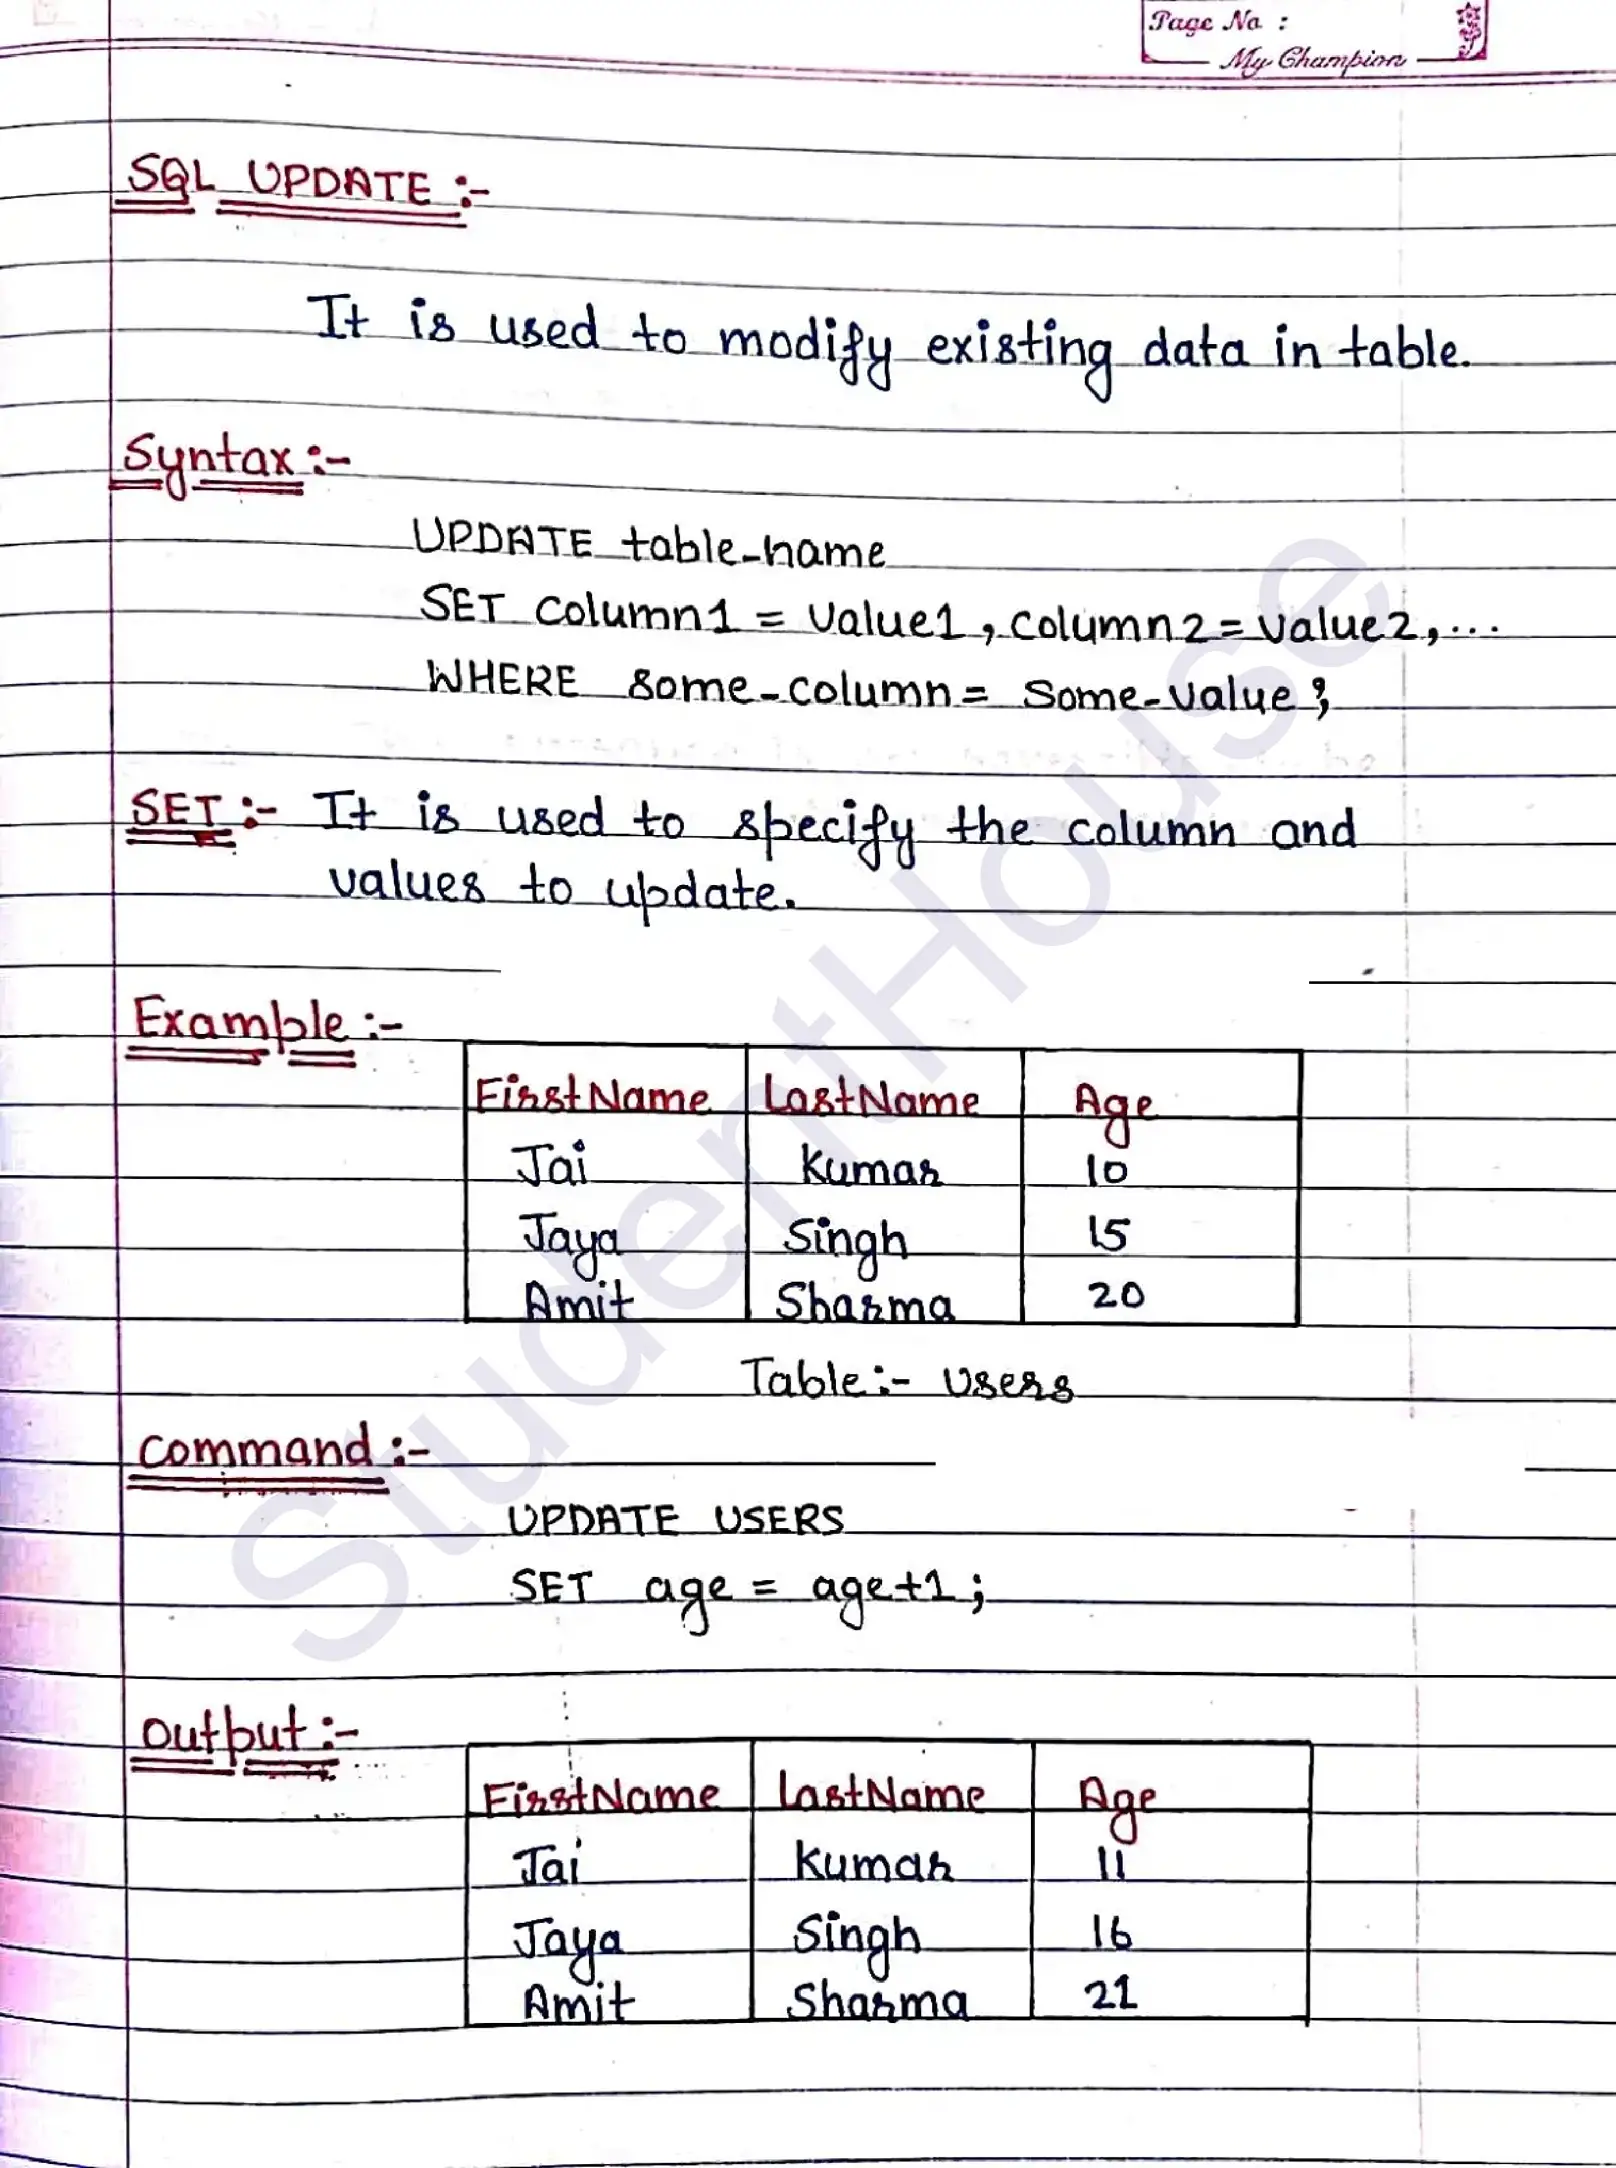 Page No :
My Champion
SQL UPDATE :-
It is used to modify existing data in table.
Syntax :-
UPDATE table-name
SET Column1 = Value1, Column2 = Value2, ...
WHERE some-column = Some-Value ;
SET :- It is used to specify the column and
values to update.
Example :-
FirstName LastName Age
Jai Kumar 10
Jaya Singh 15
Amit Sharma 20
Table :- Users
Command :-
UPDATE USERS
SET age = age+1 ;
Output :-
FirstName LastName Age
Jai Kumar 11
Jaya Singh 16
Amit Sharma 21
StudentHouse